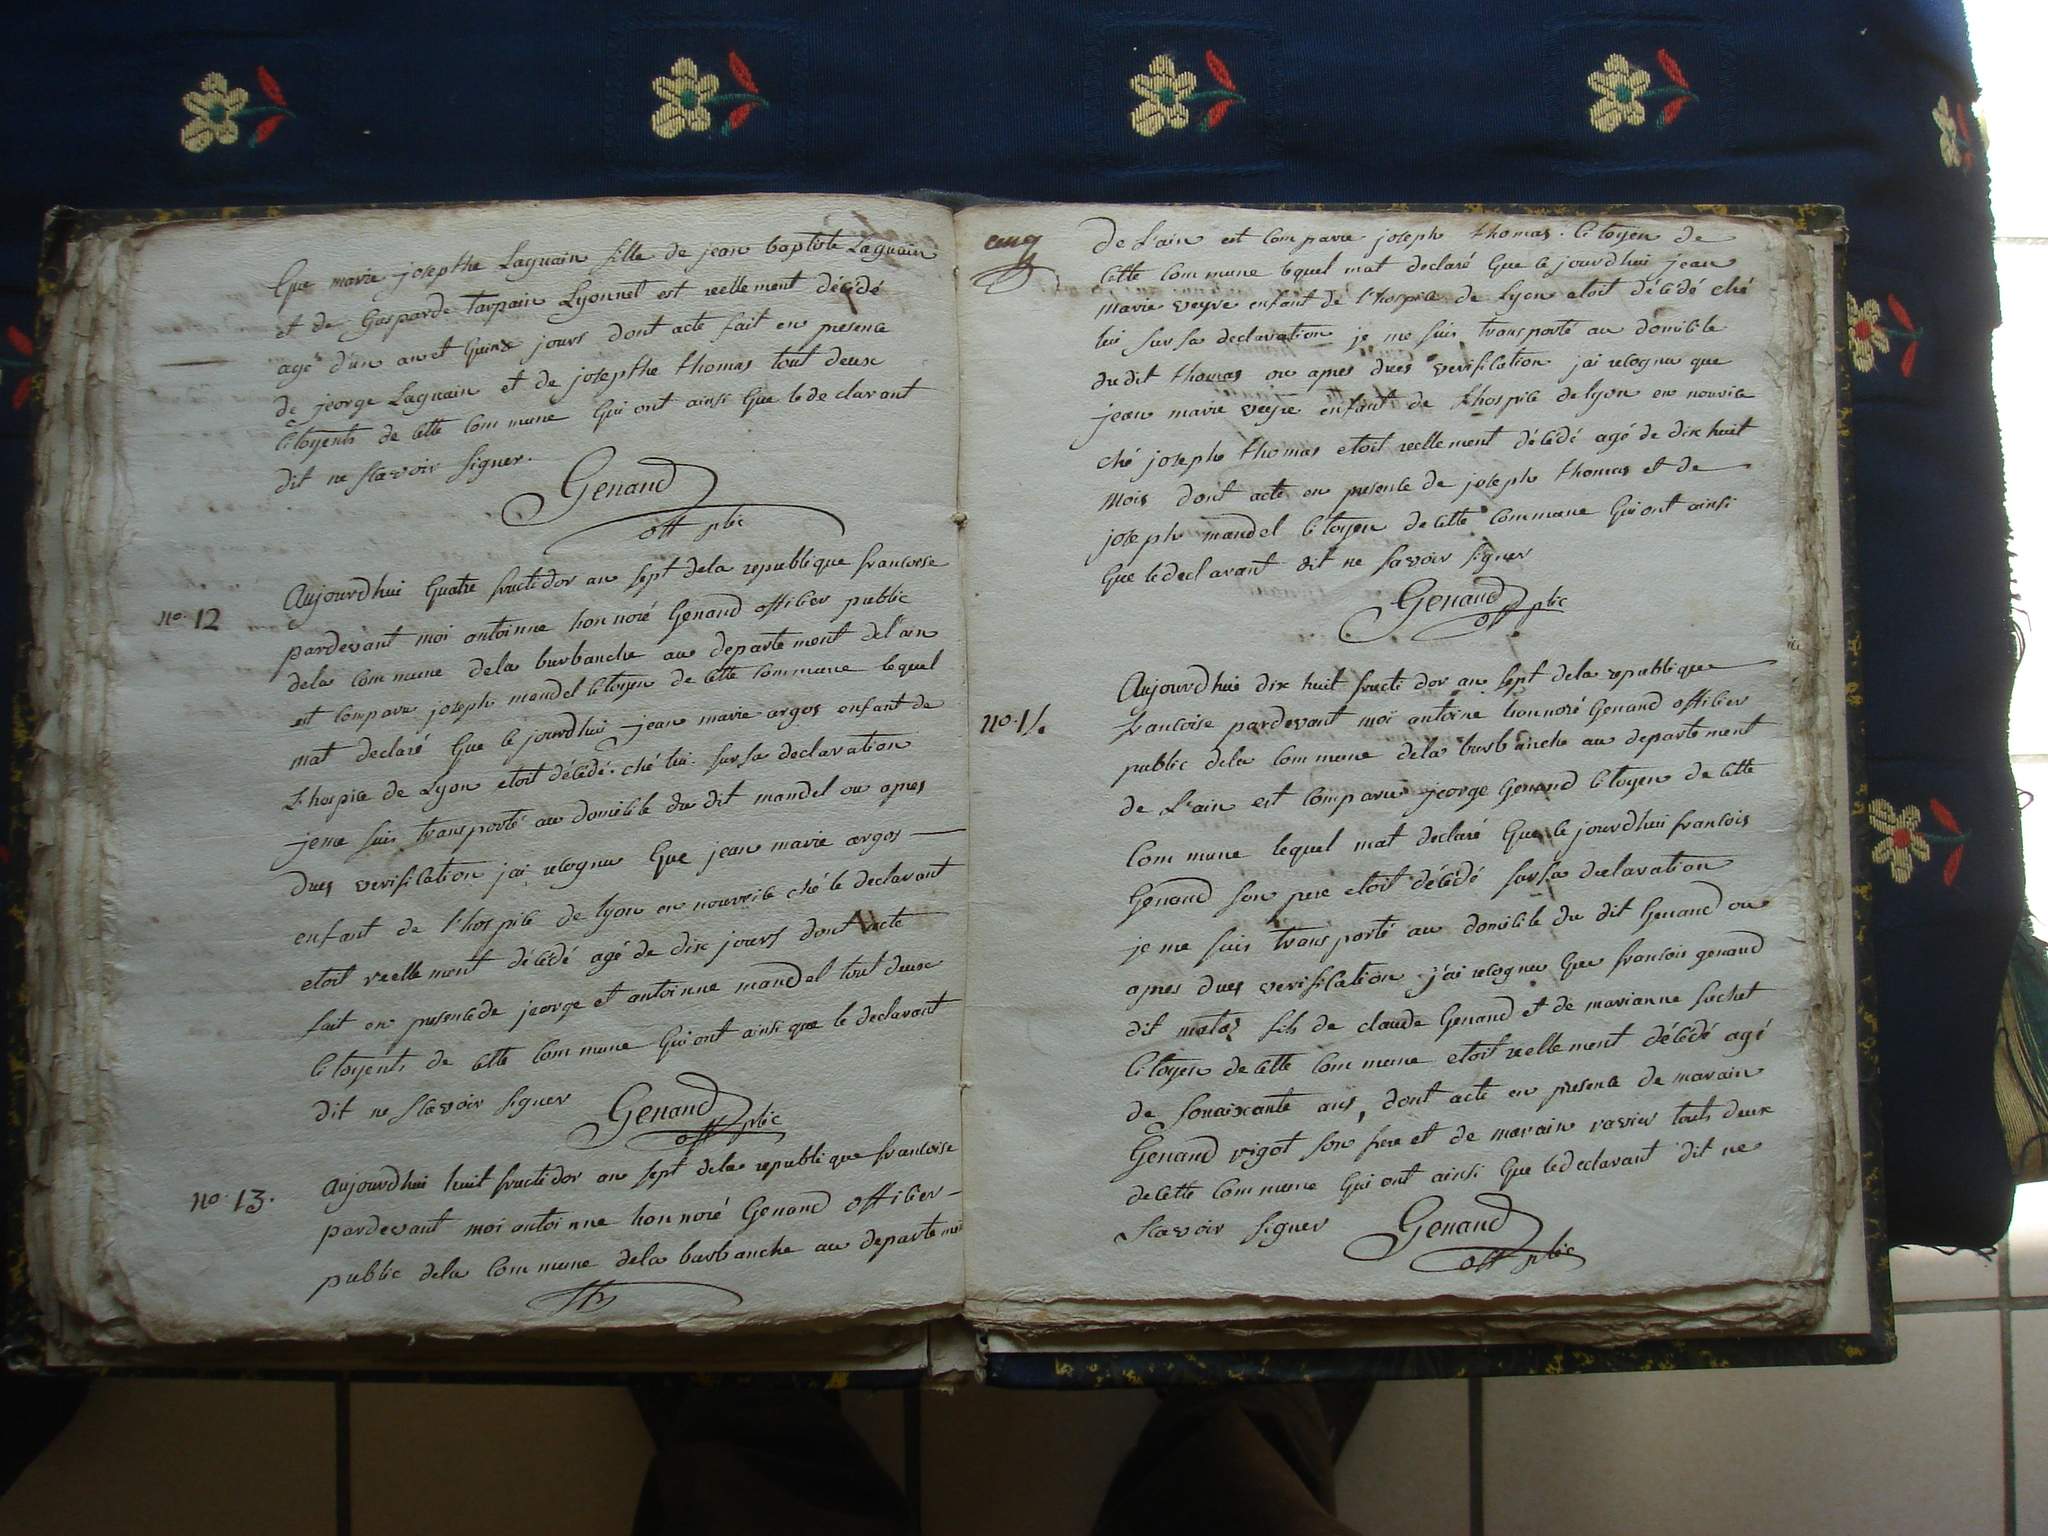 que marie josepthe Laguain fille de jean baptiste Laguain
et de Gasparde tarpain Lyonnet est reellement décédé
agé d'un an et quinze jours dont acte fait en presence
de jeorge Laguain et de josepthe thomas tout deux
citoyents de cette commune qui ont ainsi que le declarant
dit ne scavoir signer.
Genand
off plic
no. 12
Aujourdhui quatre fructidor an sept dela republique francoise
pardevant moi antoinne honnoré Genand officier public
dela commune dela burbanche au departement del'ain
est comparu joseph mandel citoyen de cette commune lequel
mat declaré que ce jourdhui jean marie argos enfant de
L'hospice de Lyon etoit décédé ché lui. sur sa declaration
je me suis transporté au domicile du dit mandel ou apres
dues verification jai recognu que jean marie argos
enfant de l'hospice de lyon en nourrice ché le declarant
etoit reellement décédé agé de dix jours dont acte
fait en presence de jeorge et antoinne mandel tout deux
citoyents de cette commune qui ont ainsi que le declarant
dit ne scavoir signer
Genand
off plic
no. 13.
Aujourdhui huit fructidor an sept dela republique francoise
pardevant moi antoinne honnoré Genand officier
public dela commune dela burbanche au departement
cinq
de L'ain est comparu joseph thomas. citoyen de
cette commune lequel mat declaré que ce jourdhui jean
marie veyre enfant de l'hospice de Lyon etoit décédé ché
lui sur sa declaration je me suis transporté au domicile
du dit thomas ou apres dues verification jai recognu que
jean marie veyre enfant de L'hospice de lyon en nourice
ché joseph thomas etoit reellement décédé agé de dix huit
mois dont acte en presence de joseph thomas et de
joseph mandel citoyen de cette commune qui ont ainsi
que le declarant dit ne savoir signer
Genand
off plic
no. 14
Aujourdhui dix huit fructidor an sept dela republique
francoise pardevant moi antoine honnoré Genand officier
public dela commune dela burbanche au departement
de L'ain est comparu jeorge Genand citoyen de cette
commune lequel mat declaré que ce jourdhui francois
Genand son pere etoit décédé sur sa declaration
je me suis transporté au domicile du dit Genand ou
apres dues verification j'ai recognu que francois genand
dit matas fils de claude Genand et de marianne suchet
citoyen de cette commune etoit reellement décédé agé
de souaixante ans, dont acte en presence de marain
Genand vigot son frere et de marain ravier touts deux
de cette commune qui ont ainsi que le declarant dit ne
scavoir signer
Genand
off plic